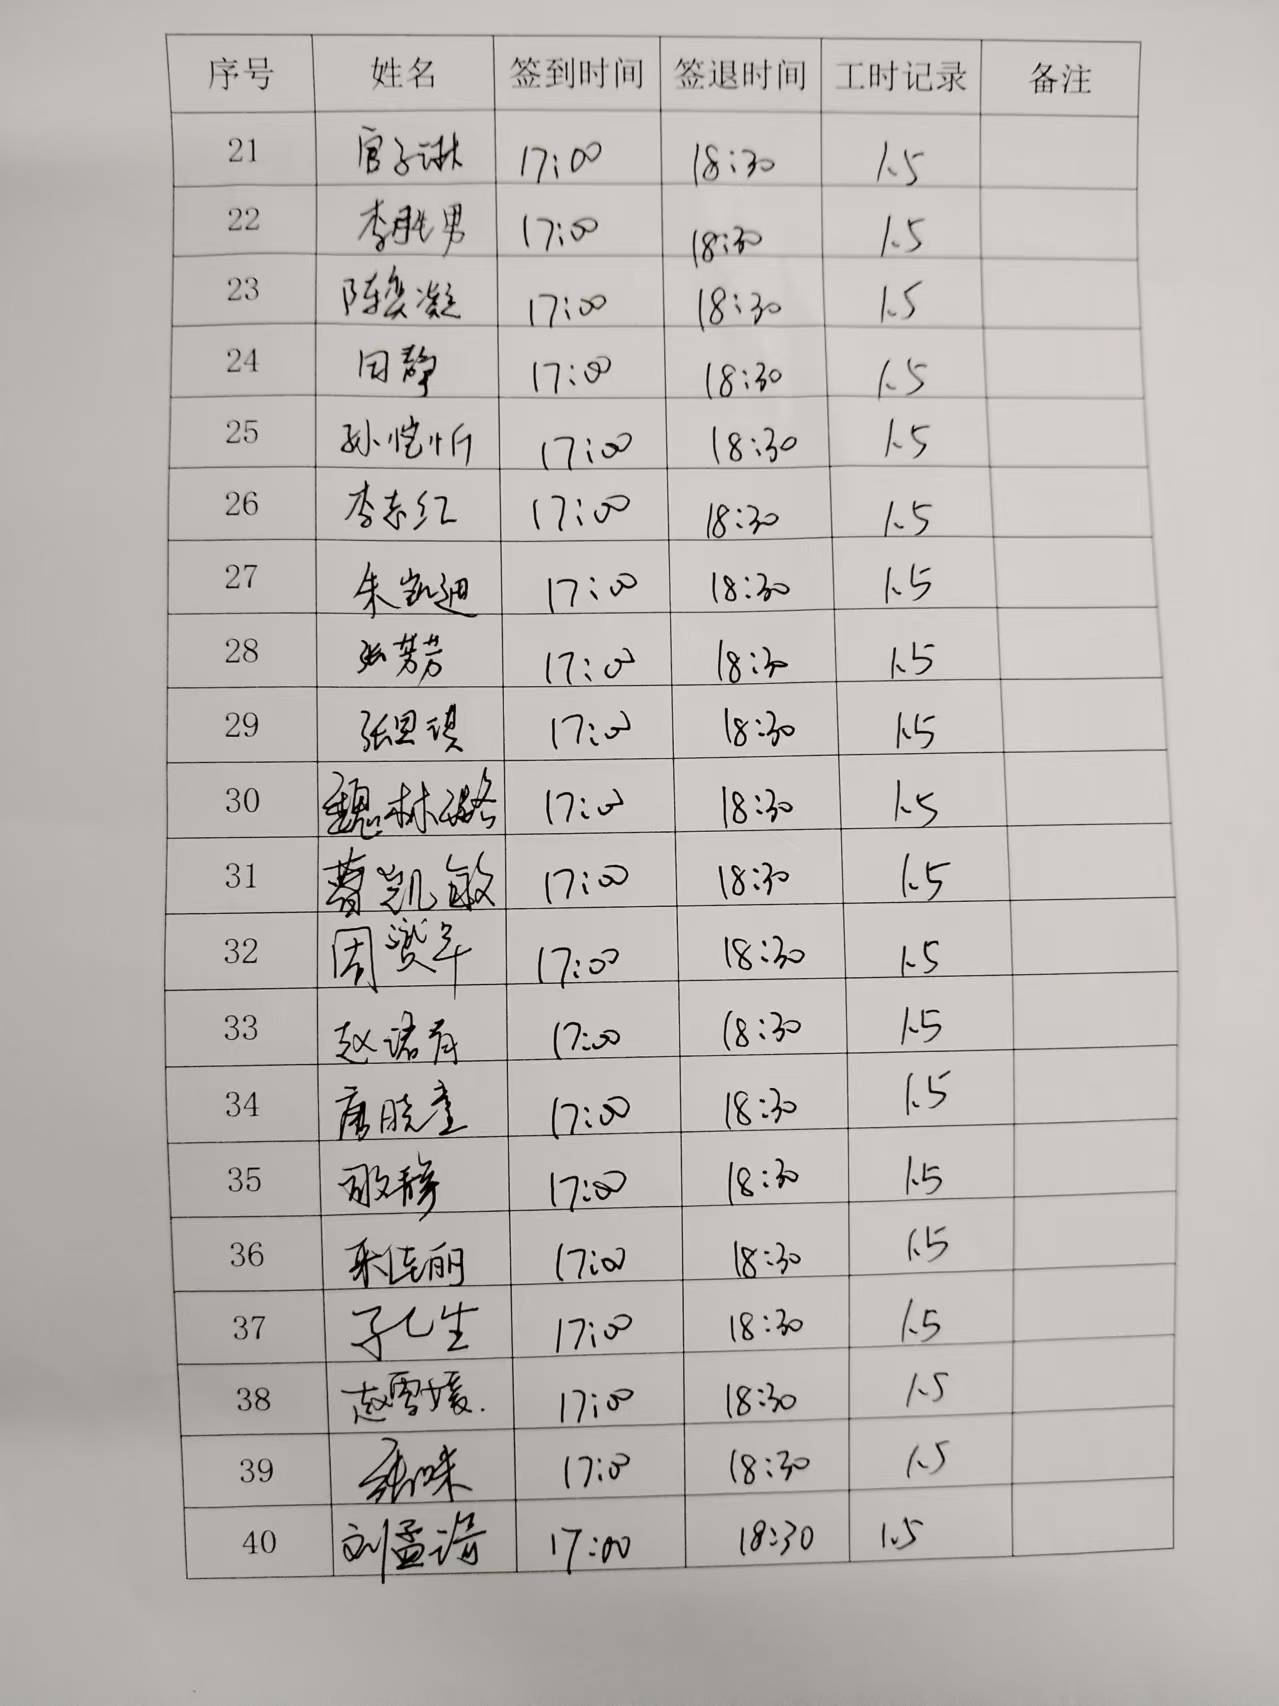 序号 姓名 签到时间 签退时间 工时记录 备注
21 官子琳 17:00 18:30 1.5
22 李胜男 17:00 18:30 1.5
23 陈奕凝 17:00 18:30 1.5
24 田静 17:00 18:30 1.5
25 孙恺忻 17:00 18:30 1.5
26 李志红 17:00 18:30 1.5
27 朱凯迪 17:00 18:30 1.5
28 张芳芳 17:00 18:30 1.5
29 张思琪 17:00 18:30 1.5
30 魏林璐 17:00 18:30 1.5
31 曹凯敏 17:00 18:30 1.5
32 周 17:00 18:30 1.5
33 赵诺 17:00 18:30 1.5
34 唐晓 17:00 18:30 1.5
35 静 17:00 18:30 1.5
36 佳丽 17:00 18:30 1.5
37 17:00 18:30 1.5
38 赵雪媛. 17:00 18:30 1.5
39 17:00 18:30 1.5
40 刘孟 17:00 18:30 1.5